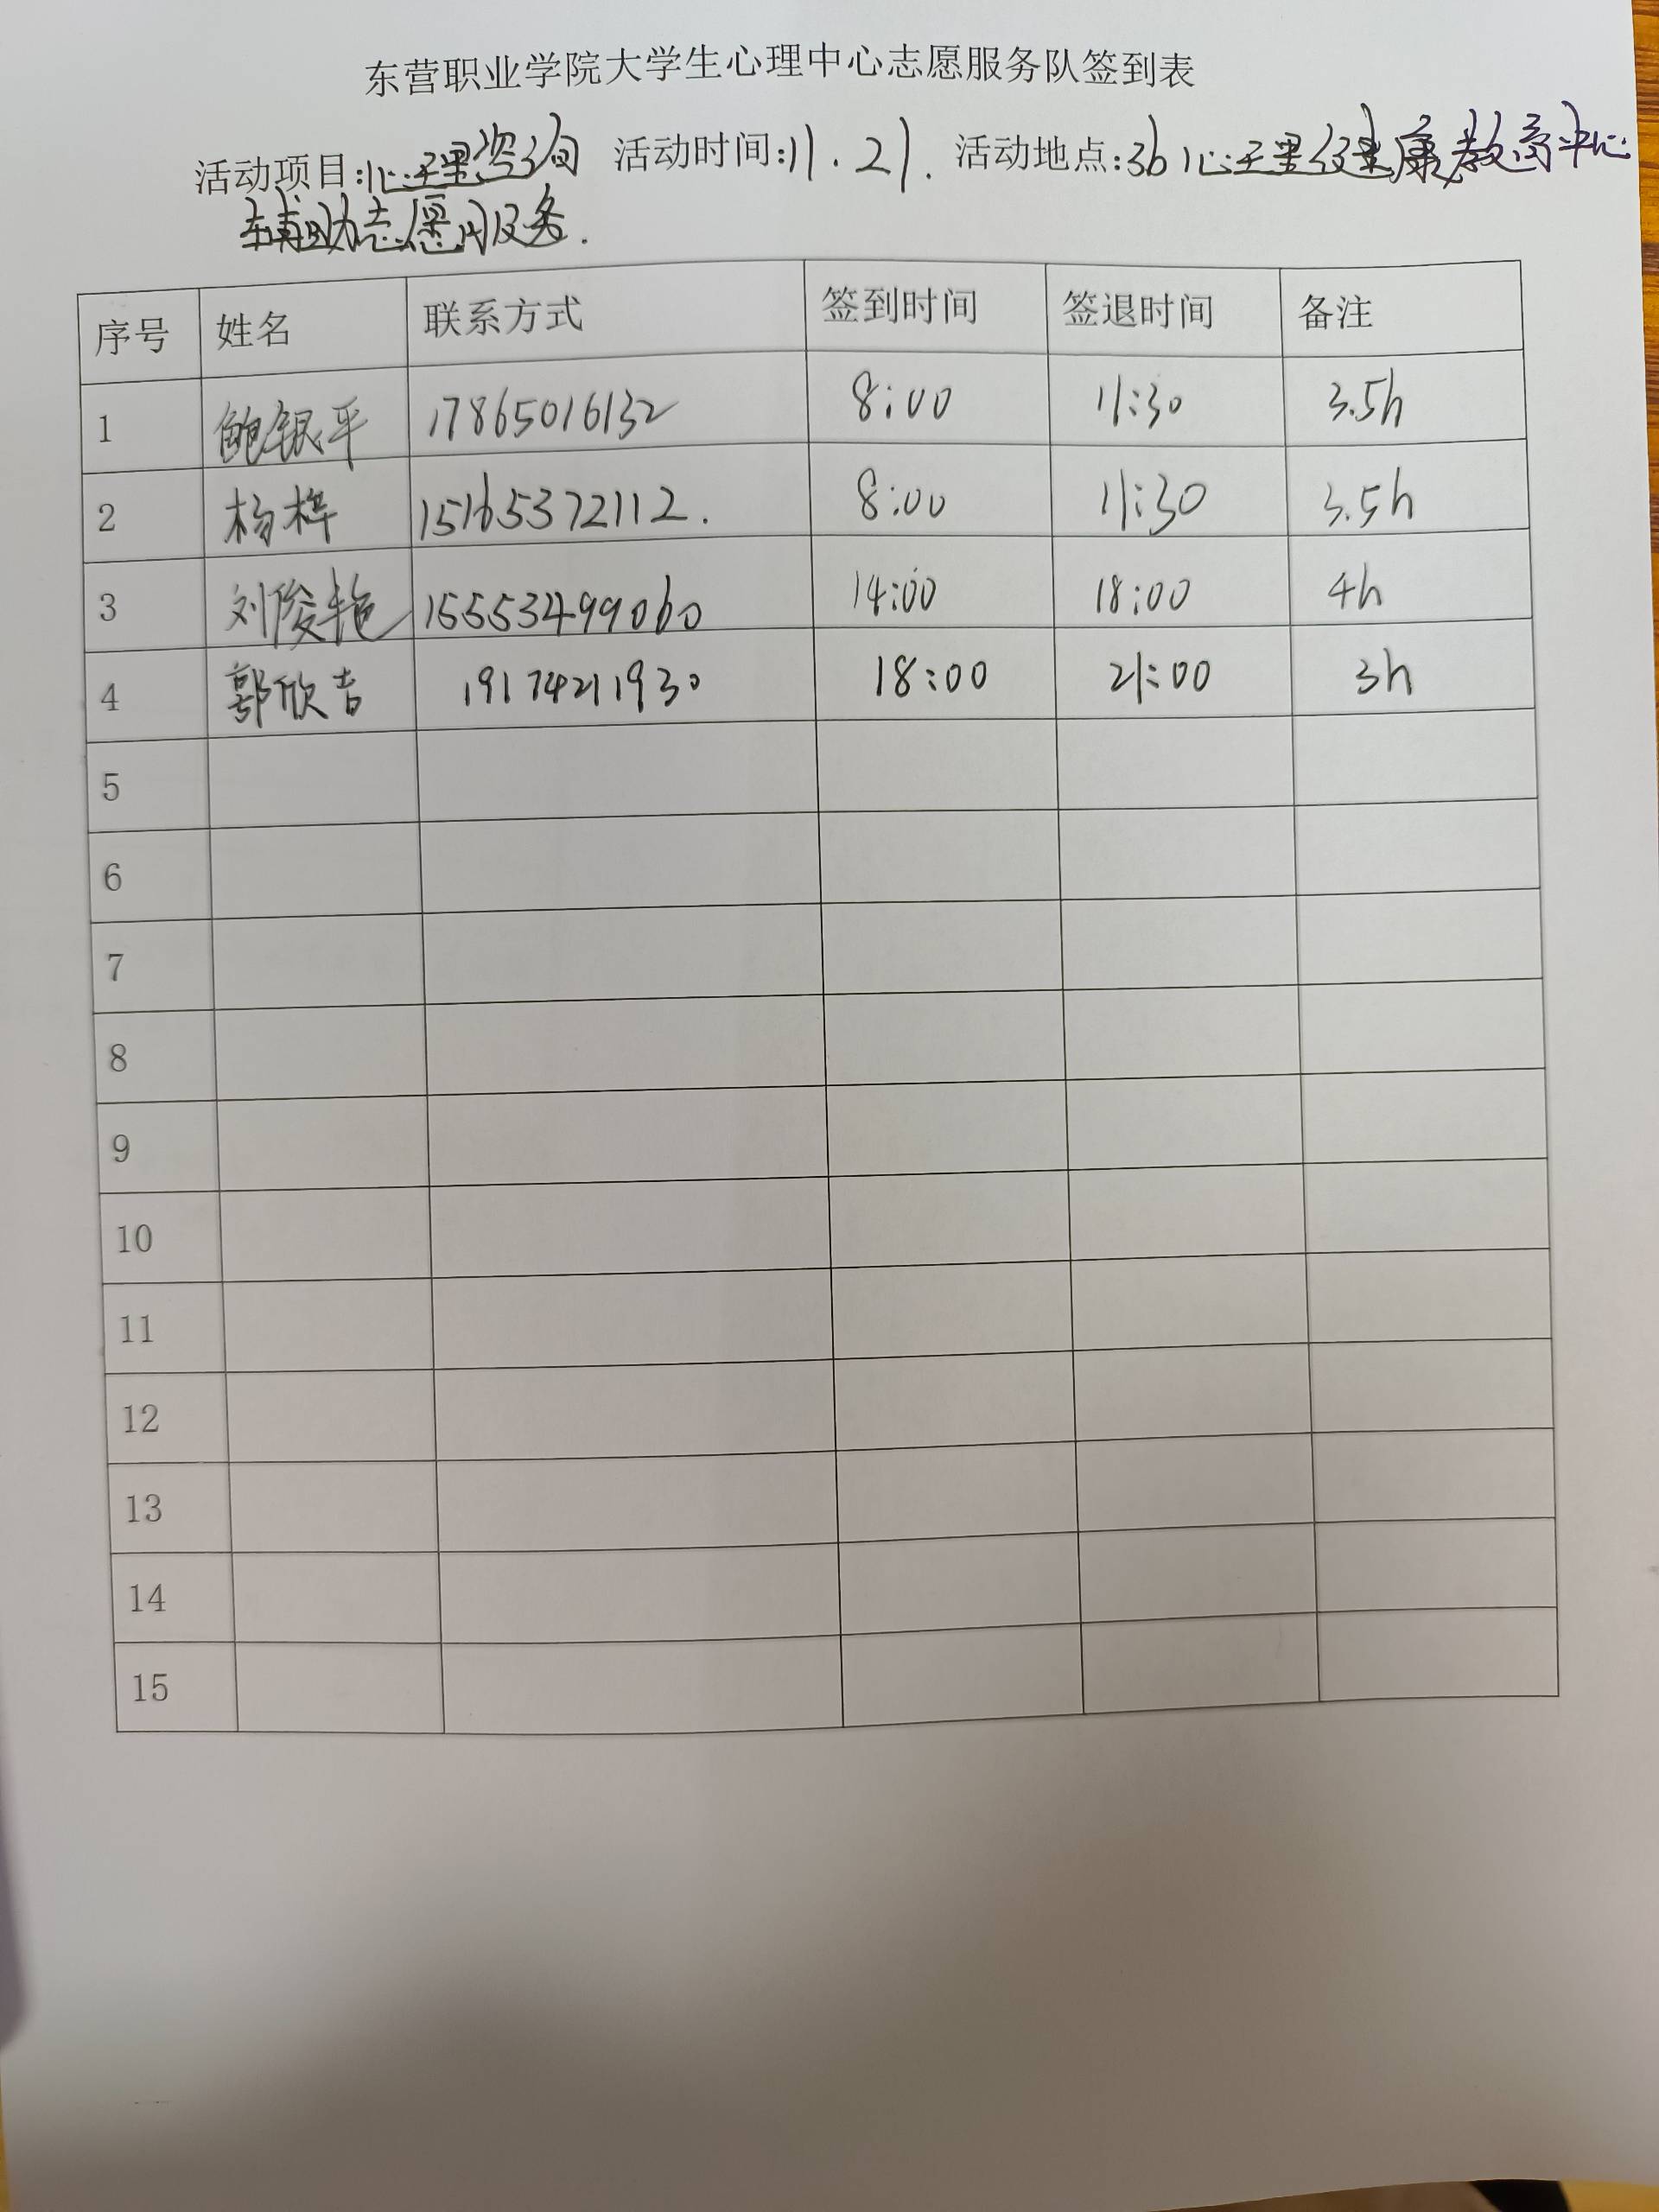 东营职业学院大学生心理中心志愿服务队签到表
活动项目:心理咨询 活动时间:11.21. 活动地点:3b心理健康教育中心
辅助志愿服务.
序号 姓名 联系方式 签到时间 签退时间 备注
1 鲍银平 17865016132 8:00 11:30 3.5h
2 杨桦 15165372112. 8:00 11:30 3.5h
3 刘俊艳 15553499060 14:00 18:00 4h
4 郭欣吉 19174211930 18:00 21:00 3h
5
6
7
8
9
10
11
12
13
14
15